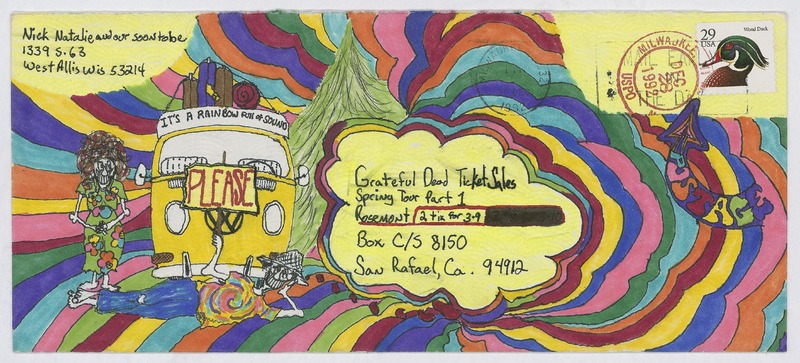 Nick Natalie and our soon to be
1339 S. 63
West Allis Wis 53214
29
USA
Wood Duck
MILWAUKEE
DEC
28
1992
USPO
IT'S A RAINBOW FULL OF SOUND
PLEASE
Grateful Dead Ticket Sales
Spring Tour Part 1
Rosemont 2 tix for 3-9
Box C/S 8150
San Rafael, Ca. 94912